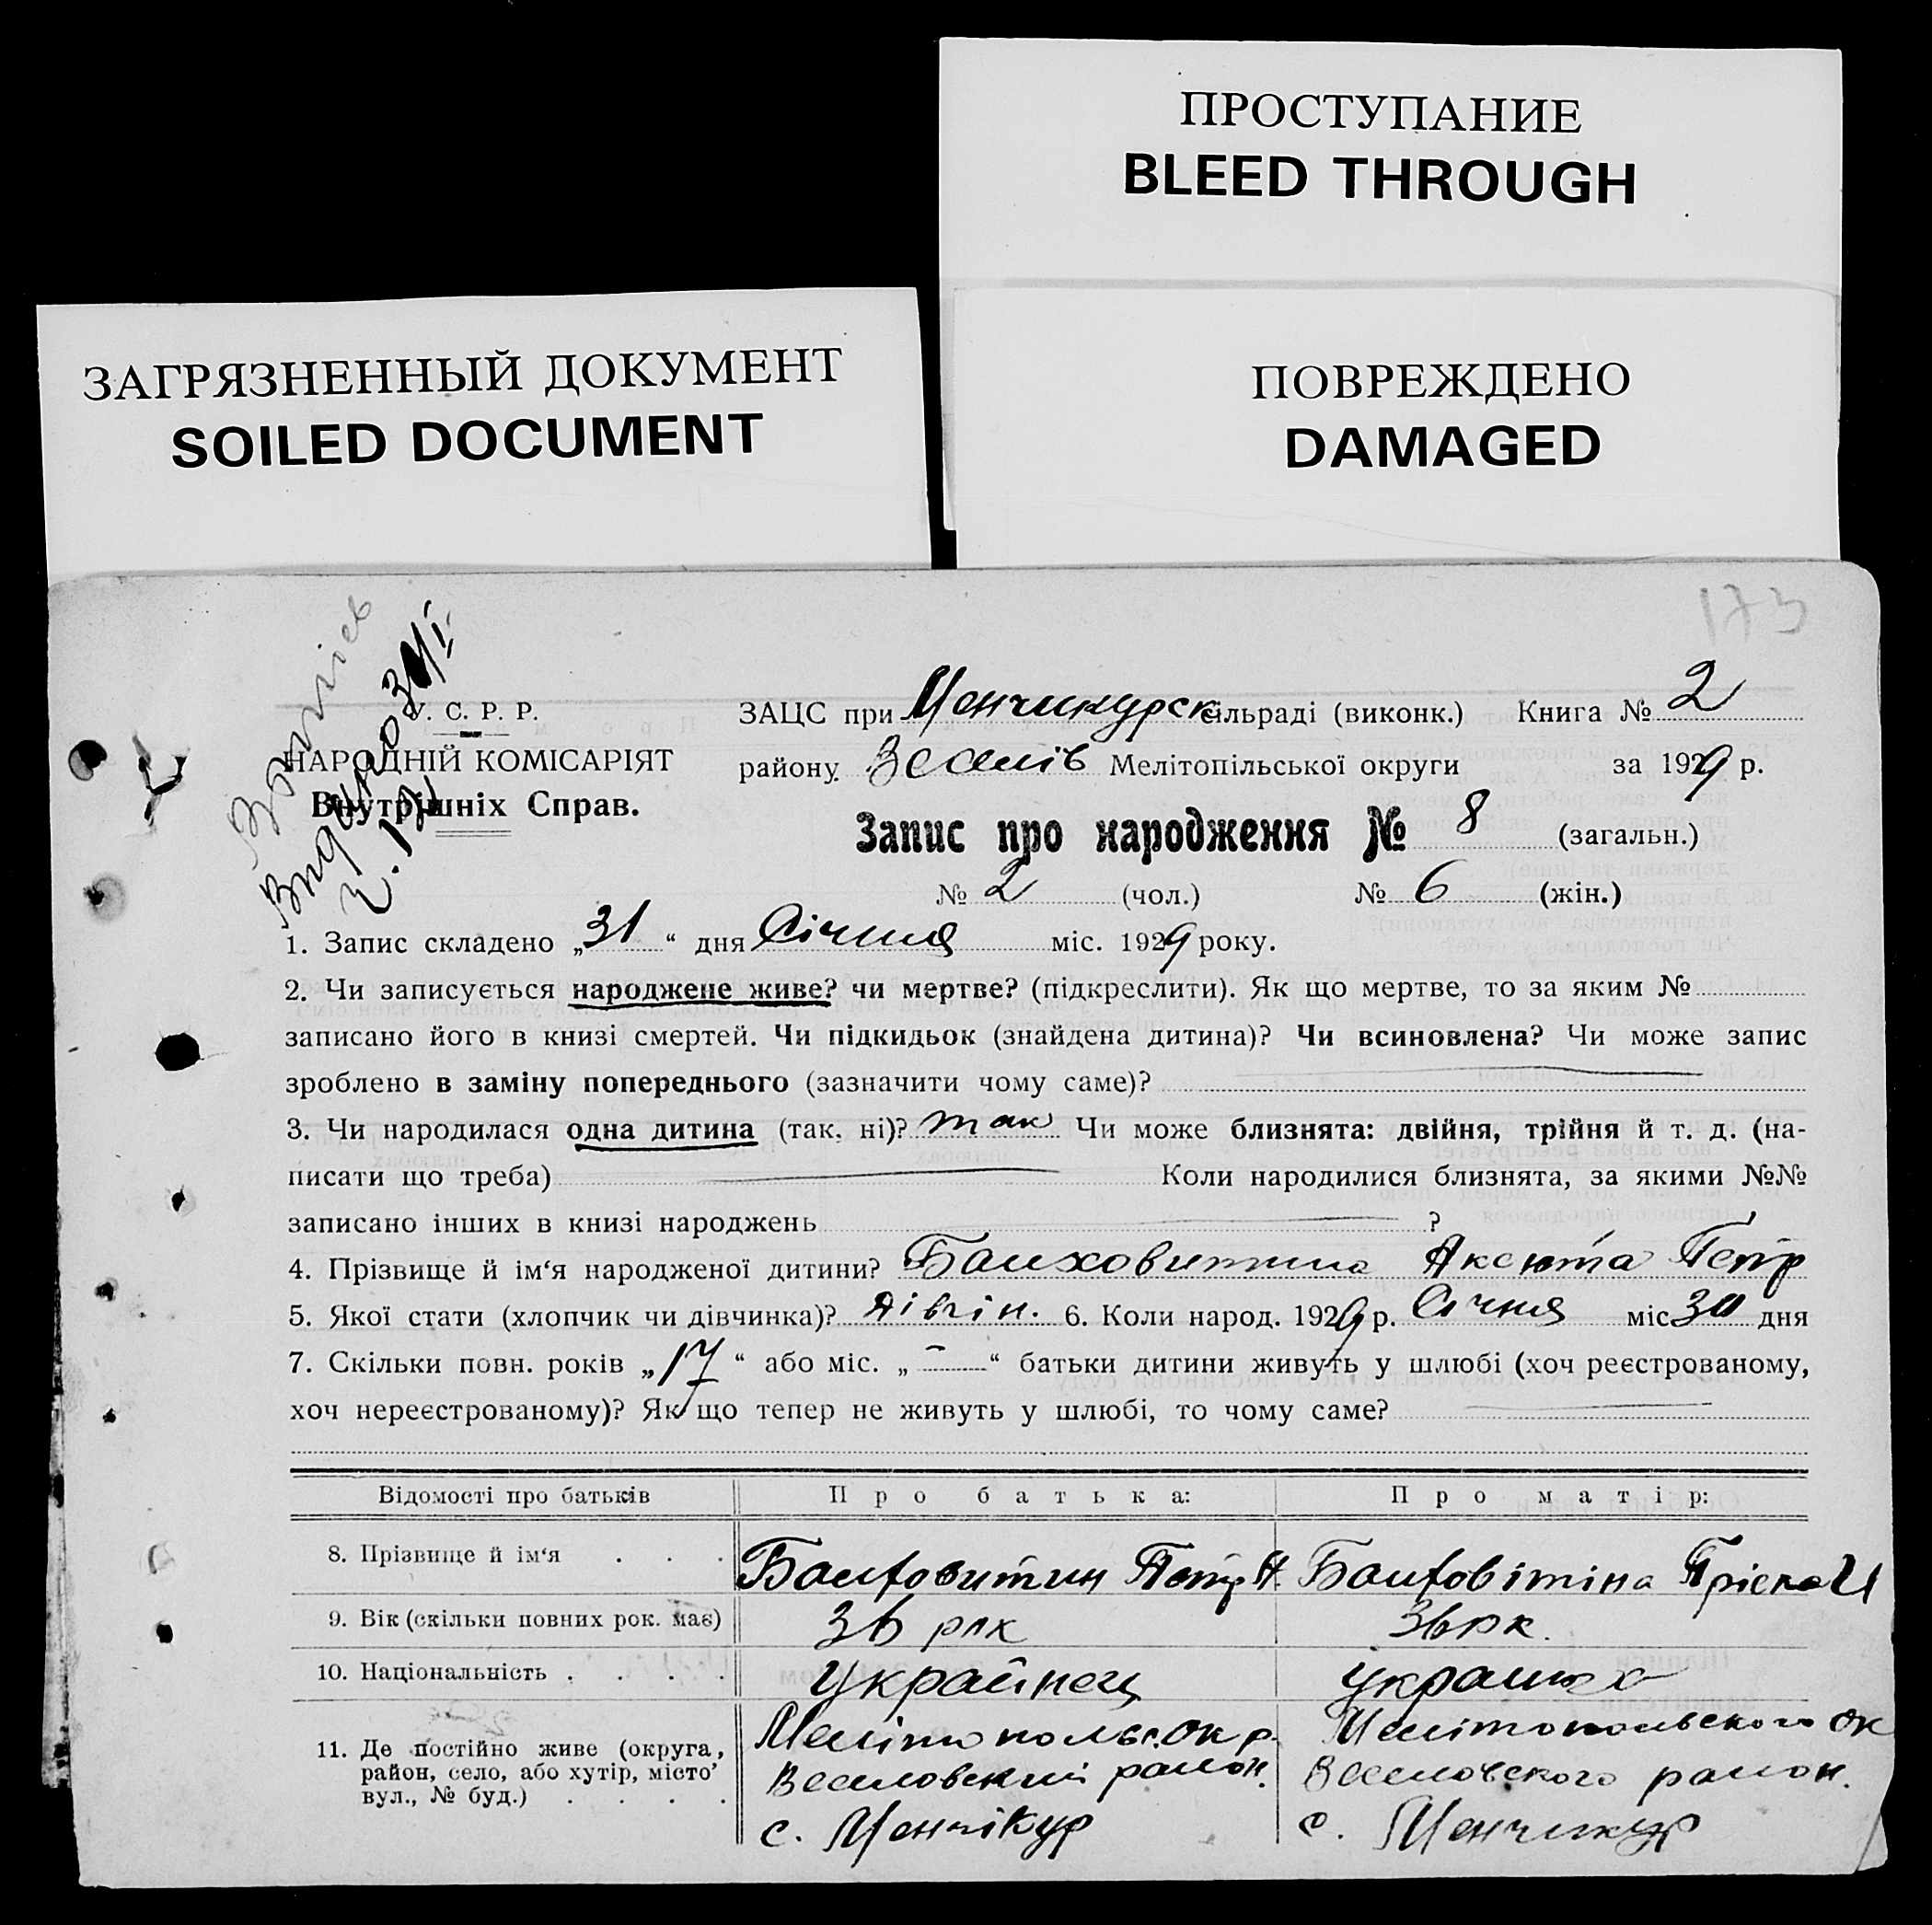 ПРОСТУПАНИЕ
BLEED THROUGH
ЗАГРЯЗНЕННЫЙ ДОКУМЕНТ
SOILED DOCUMENT
ПОВРЕЖДЕНО
DAMAGED
173
У. С. Р. Р.
НАРОДНІЙ КОМІСАРІЯТ
Внутрішніх Справ.
ЗАЦС при Менчикурск сільраді (виконк.) Книга № 2
району Веселів Мелітопільської округи за 1929 р.
Запис про народження № 8 (загальн.)
№ 2 (чол.) № 6 (жін.)
1. Запис складено „31“ дня Січня міс. 1929 року.
2. Чи записується народжене живе? чи мертве? (підкреслити). Як що мертве, то за яким №
записано його в книзі смертей. Чи підкидьок (знайдена дитина)? Чи всиновлена? Чи може запис
зроблено в заміну попереднього (зазначити чому саме)?
3. Чи народилася одна дитина (так, ні)? так Чи може близнята: двійня, трійня й т. д. (на-
писати що треба) Коли народилися близнята, за якими №№
записано інших в книзі народжень ?
4. Прізвище й ім‘я народженої дитини? Аксюта Петр
5. Якої стати (хлопчик чи дівчинка)? дівчін. 6. Коли народ. 1929 р. Січня міс 30 дня
7. Скільки повн. років „17“ або міс. „-“ батьки дитини живуть у шлюбі (хоч реєстрованому,
хоч нереєстрованому)? Як що тепер не живуть у шлюбі, то чому саме?
Відомості про батьків Про батька: Про матір:
8. Прізвище й ім‘я . . .
9. Вік (скільки повних рок. має) 36 рік 36 рк.
10. Національність . . . . Украйнец украинка
11. Де постійно живе (округа, район, село, або хутір, місто, вул., № буд.) . . . .
Мелітопольс. Окр. Мелітопольского Ок
Веселовский район. Веселовского район.
с. Менчікур с. Менчикур